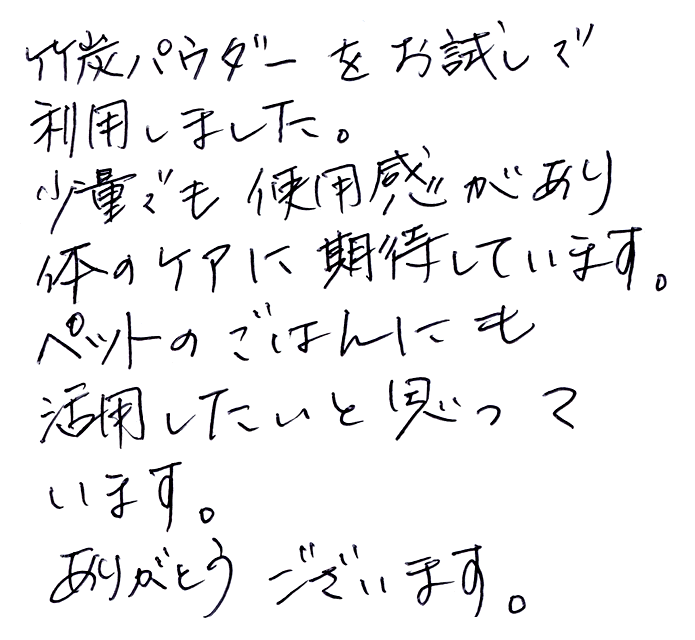 竹炭パウダーをお試しで
利用しました。
少量でも使用感があり
体のケアに期待しています。
ペットのごはんにも
活用したいと思って
います。
ありがとうございます。